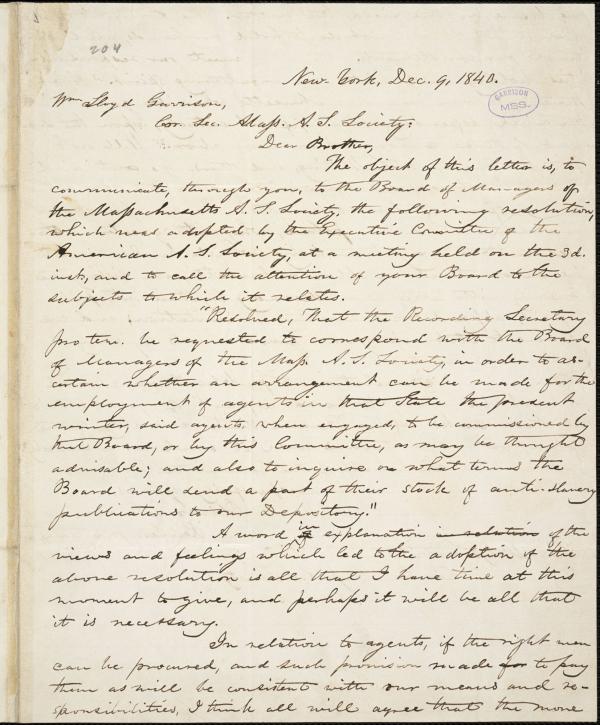 204
New York, Dec. 9, 1840.
GARRISON
MSS.
Wm Lloyd Garrison,
Cor. Sec. Mass. A. S. Society:
Dear Brother,
The object of this letter is, to
communicate, through you, to the Board of Managers of
the Massachusetts A. S. Society, the following resolution,
which was adopted by the Executive Committee of the
American A. S. Society, at a meeting held on the 3d.
inst., and to call the attention of your Board to the
subjects to which it relates.
"Resolved, That the Recording Secretary
pro tem. be requested to correspond with the Board
of Managers of the Mass. A. S. Society, in order to as-
certain whether an arrangement can be made for the
employment of agents in that State the present
winter, said agents, when engaged, to be commissioned by
that Board, or by this Committee, as may be thought
advisable; and also to inquire on what terms the
Board will send a part of their stock of anti-slavery
publications to our Depository."
A word in explanation in relation of the
views and feelings which led to the adoption of the
above resolution is all that I have time at this
moment to give, and perhaps it will be all that
it is necessary.
In relation to agents, if the right men
can be procured, and such provision made for to pay
them as will be consistent with our means and re-
sponsibilities, I think all will agree that the more